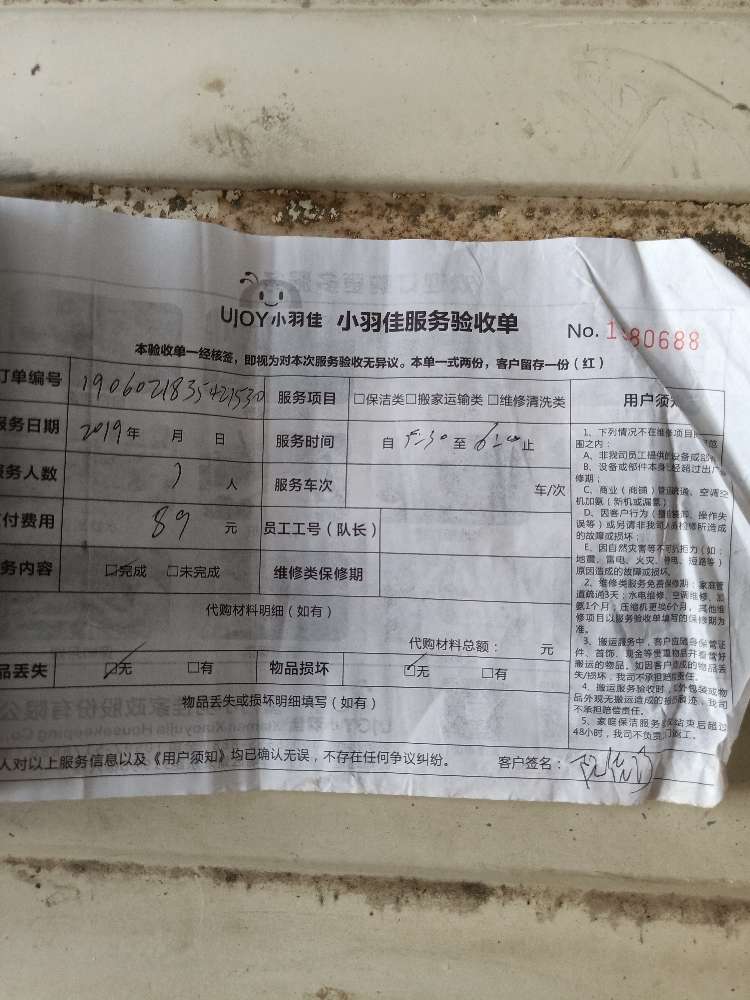 UJOY小羽佳 小羽佳服务验收单 No. 1180688
本验收单一经核签，即视为对本次服务验收无异议。本单一式两份，客户留存一份（红）
订单编号 服务项目 □保洁类□搬家运输类□维修清洗类
服务日期 2019年 月 日 服务时间 自 至 止
服务人数 人 服务车次 车/次
付费用 89 元 员工工号（队长）
务内容 □完成 □未完成 维修类保修期
代购材料明细（如有）
代购材料总额： 元
品丢失 □无 □有 物品损坏 □无 □有
物品丢失或损坏明细填写（如有）
人对以上服务信息以及《用户须知》均已确认无误，不存在任何争议纠纷。 客户签名：
用户须知
1、下列情况不在维修项目
围之内：
A、非我司员工提供的设备或部
B、设备或部件本身已经超过出厂
修期；
C、商业（商铺）管道疏通、空调
机加氨（新机或漏氨）
D、因客户行为 操作失
误等）或另请非我司人员检修所造成
的故障或损坏；
E、因自然灾害等不可抗拒力（如：
地震、雷电、火灾、停电、短路等）
原因造成的故障或损坏。
2、维修类服务免费保修期：家庭管
道疏通3天；水电维修、空调维修、加
氨1个月；压缩机更换6个月，其他维
修项目以服务验收单填写的保修期为
准。
3、搬运服务中，客户应随身保管证
件、首饰、现金等贵重物品并看管好
搬运的物品。如因客户造成的物品丢
失/损坏，我司不承担赔偿责任。
4、搬运服务验收时， 外包装或物
品外观无搬运造成的 我司
不承担赔偿责任。
5、家庭保洁服务 结束后超过
48小时，我司不负责 返工。